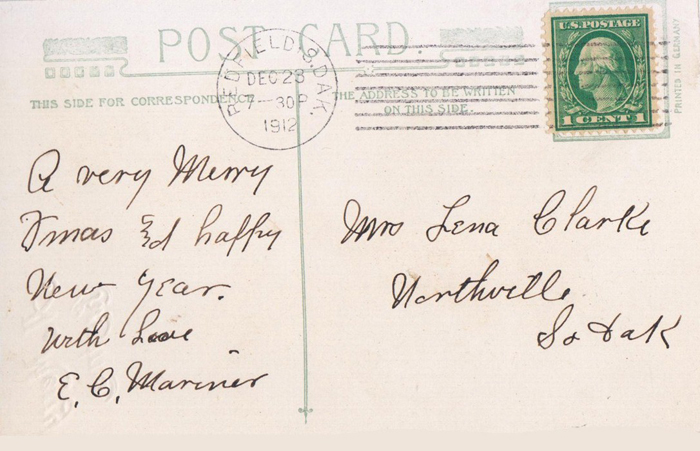 POST CARD
REDFIELD, S. DAK.
DEC 28
7–30 P
1912
U.S. POSTAGE
1 CENT 1
PRINTED IN GERMANY
THIS SIDE FOR CORRESPONDENCE
THE ADDRESS TO BE WRITTEN
ON THIS SIDE.
A very Merry
Xmas & happy
New Year.
With Love
E. C. Mariner
Mrs Lena Clarke
Northville
So Dak